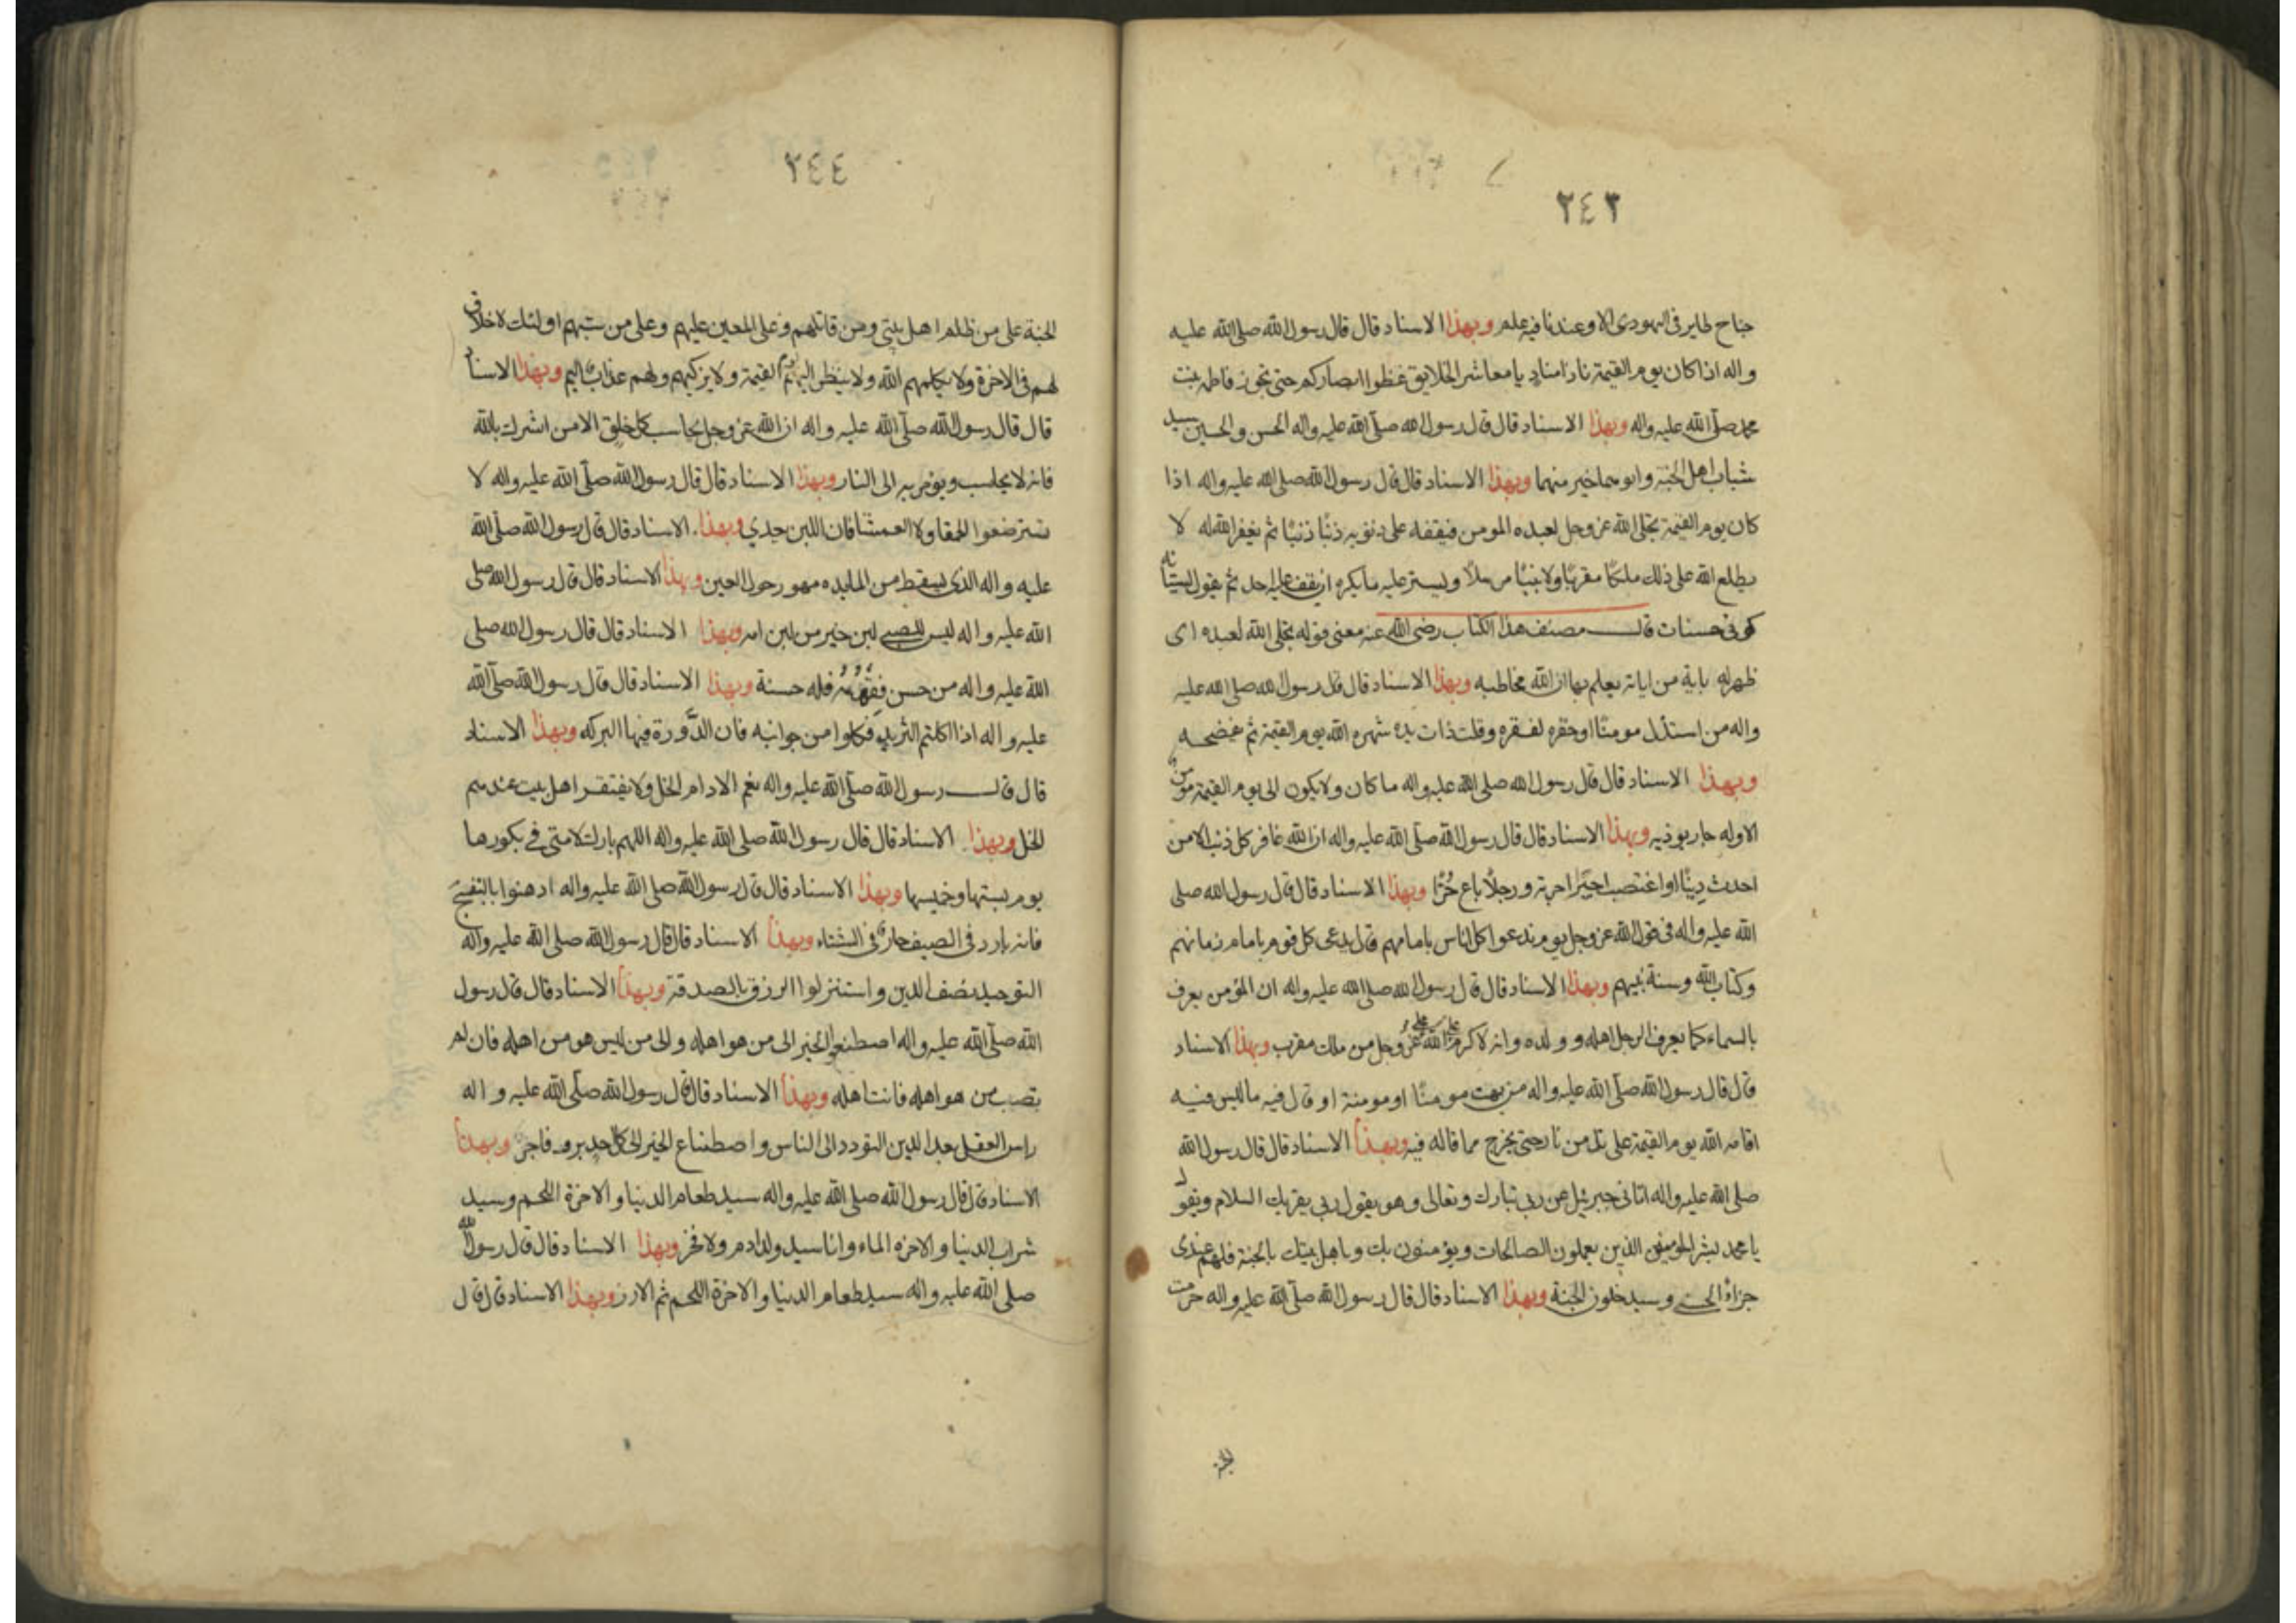 ٢٤٣
جناح طاير في الهودى الا وعندنا فيه علم وبهذا الاسناد قال قال رسول الله صلى الله عليه
واله اذا كان يوم القيمة نادا مناد يا معاشر الخلايق غضوا ابصاركم حتى تجوز فاطمه بنت
محمد صلى الله عليه واله وبهذا الاسناد قال قال رسول الله صلى الله عليه واله الحسن والحسين سيدا
شباب اهل الجنة وابوهما خير منهما وبهذا الاسناد قال قال رسول الله صلى الله عليه واله اذا
كان يوم القيمة تجلى الله عز وجل لعبده المومن فيقفه على ذنوبه ذنبًا ذنبًا ثم يغفر الله له لا
يطلع الله على ذلك ملكًا مقربًا ولا نبيًا مرسلًا ويستر عليه ما يكره ان يقف عليه احد ثم يقول لسيئاته
كوني حسنات قال مصنف هذا الكتاب رضى الله عنه معنى قوله تجلى الله لعبده اى
ظهر له باية من اياته يعلم بها ان الله مخاطبه وبهذا الاسناد قال قال رسول الله صلى الله عليه
واله من استذل مومنًا او حقره لفقره وقلت ذات يده شهره الله يوم القيمة ثم يفضحه
وبهذا الاسناد قال قال رسول الله صلى الله عليه واله ما كان ولا يكون الى يوم القيمة مومن
الا وله جار يوذيه وبهذا الاسناد قال قال رسول الله صلى الله عليه واله ان الله غافر كل ذنب الا من
احدث دينًا او اغتصب اجيرًا اجرته ورجلًا باع حُرًّا وبهذا الاسناد قال قال رسول الله صلى
الله عليه واله في قول الله عز وجل يوم ندعوا كل اناس بامامهم قال يدعى كل قوم بامام زمانهم
وكتاب الله وسنة نبيهم وبهذا الاسناد قال قال رسول الله صلى الله عليه واله ان المؤمن يعرف
بالسماء كما يعرف الرجل اهله وولده وانه لاكرم على الله عز وجل من ملك مقرب وبهذا الاسناد
قال قال رسول الله صلى الله عليه واله من بهت مومنًا او مومنة او قال فيه ما ليس فيه
اقامه الله يوم القيمة على تل من نار حتى يخرج مما قاله فيه وبهذا الاسناد قال قال رسول الله
صلى الله عليه واله اتاني جبرئيل عن ربي تبارك وتعالى وهو يقول ربي يقريك السلام ويقول
يا محمد بشر المؤمنين الذين يعملون الصالحات ويؤمنون بك وباهل بيتك بالجنة فلهم عندى
جزاءً الحسنى وسيدخلون الجنة وبهذا الاسناد قال قال رسول الله صلى الله عليه واله حرمت
٢٤٤
الجنة على من ظلم اهل بيتي ومن قاتلهم وعلى المعين عليهم وعلى من سبهم اولئك لا خلاق
لهم في الاخرة ولا يكلمهم الله ولا ينظر اليهم يوم القيمة ولا يزكيهم ولهم عذاب اليم وبهذا الاسناد
قال قال رسول الله صلى الله عليه واله ان الله عز وجل يحاسب كل خلق الا من اشرك بالله
فانه لا يحاسب ويؤمر به الى النار وبهذا الاسناد قال قال رسول الله صلى الله عليه واله لا
تسترضعوا الحمقا ولا العمشا فان اللبن يعدي وبهذا الاسناد قال قال رسول الله صلى الله
عليه واله الذى يسقط من المايده مهور حول العين وبهذا الاسناد قال قال رسول الله صلى
الله عليه واله ليس للصبي لبن خير من لبن امه وبهذا الاسناد قال قال رسول الله صلى
الله عليه واله من حسن فقهه فله حسنة وبهذا الاسناد قال قال رسول الله صلى الله
عليه واله اذا اكلتم الثريد فكلوا من جوانبه فان الذّورة فيها البركه وبهذا الاسناد
قال قال رسول الله صلى الله عليه واله نعم الادام الخل ولا يفتقر اهل بيت عندهم
الخل وبهذا الاسناد قال قال رسول الله صلى الله عليه واله اللهم بارك لامتي في بكورها
يوم سبتها وخميسها وبهذا الاسناد قال قال رسول الله صلى الله عليه واله ادهنوا بالبنفسج
فانه بارد في الصيف حار في الشتاء وبهذا الاسناد قال قال رسول الله صلى الله عليه واله
التوحيد نصف الدين واستنزلوا الرزق بالصدقة وبهذا الاسناد قال قال رسول
الله صلى الله عليه واله اصطنعوا الخير الى من هو اهله والى من ليس هو من اهله فان لم
تصب من هو اهله فانت اهله وبهذا الاسناد قال قال رسول الله صلى الله عليه واله
راس العقل بعد الدين التودد الى الناس واصطناع الخير الى كل احد بر وفاجر وبهذا
الاسناد قال قال رسول الله صلى الله عليه واله سيد طعام الدنيا والاخرة اللحم وسيد
شراب الدنيا والاخره الماء وانا سيد ولد ادم ولا فخر وبهذا الاسناد قال قال رسول الله
صلى الله عليه واله سيد طعام الدنيا والاخرة اللحم ثم الارز وبهذا الاسناد قال قال